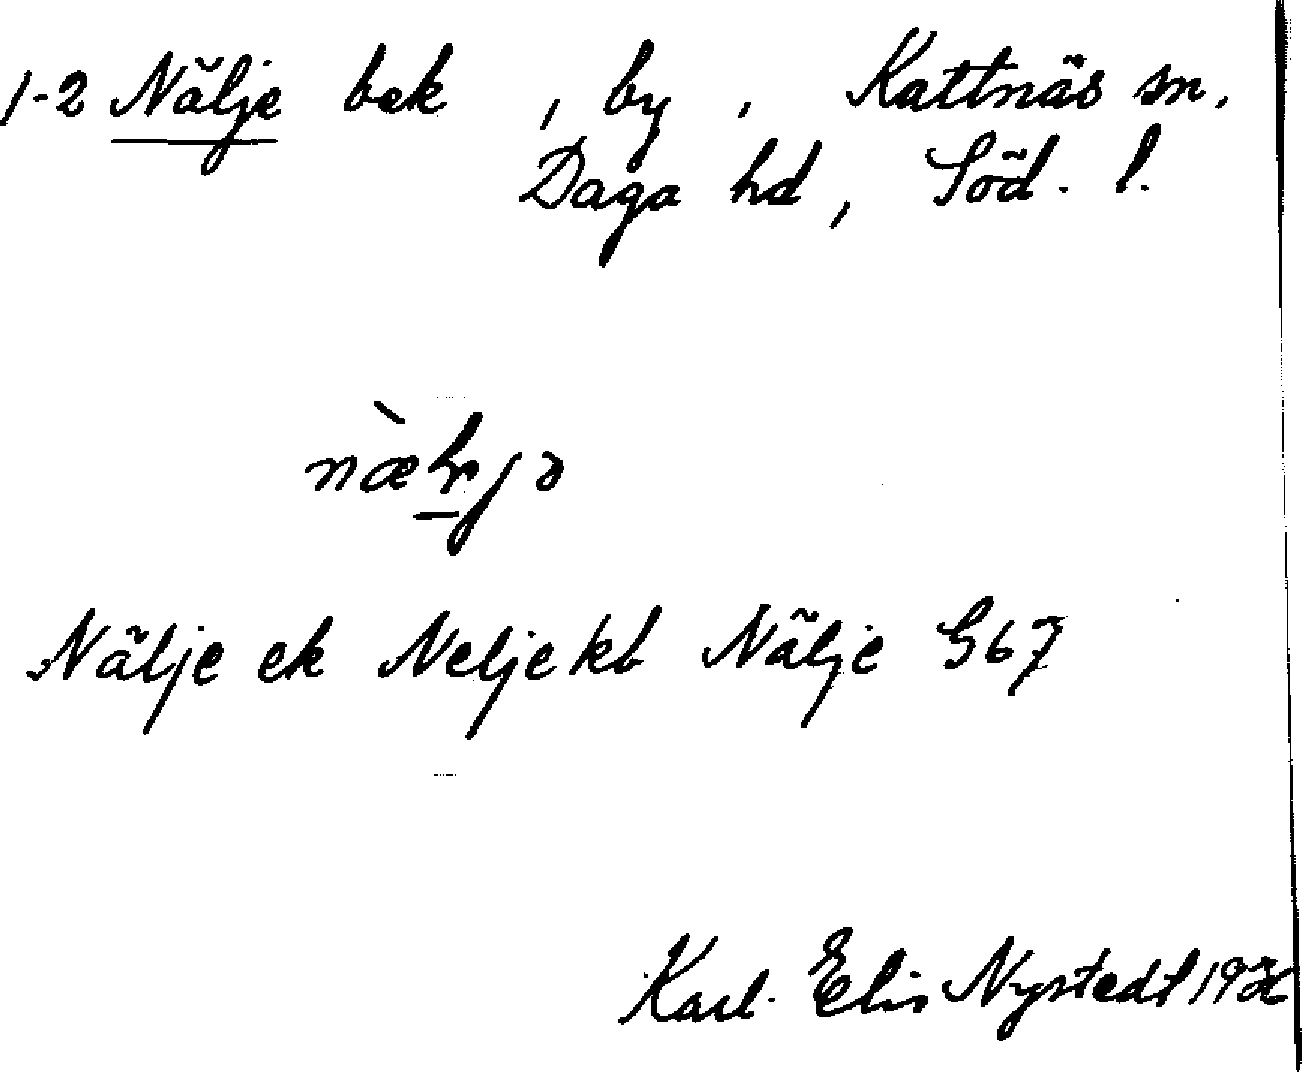 1-2 Nälje bek , by , Kattnäs sn.
Daga hd , Söd. l.
Nälje ek Nelje kb Nälje G67
Karl. Elis Nystedt